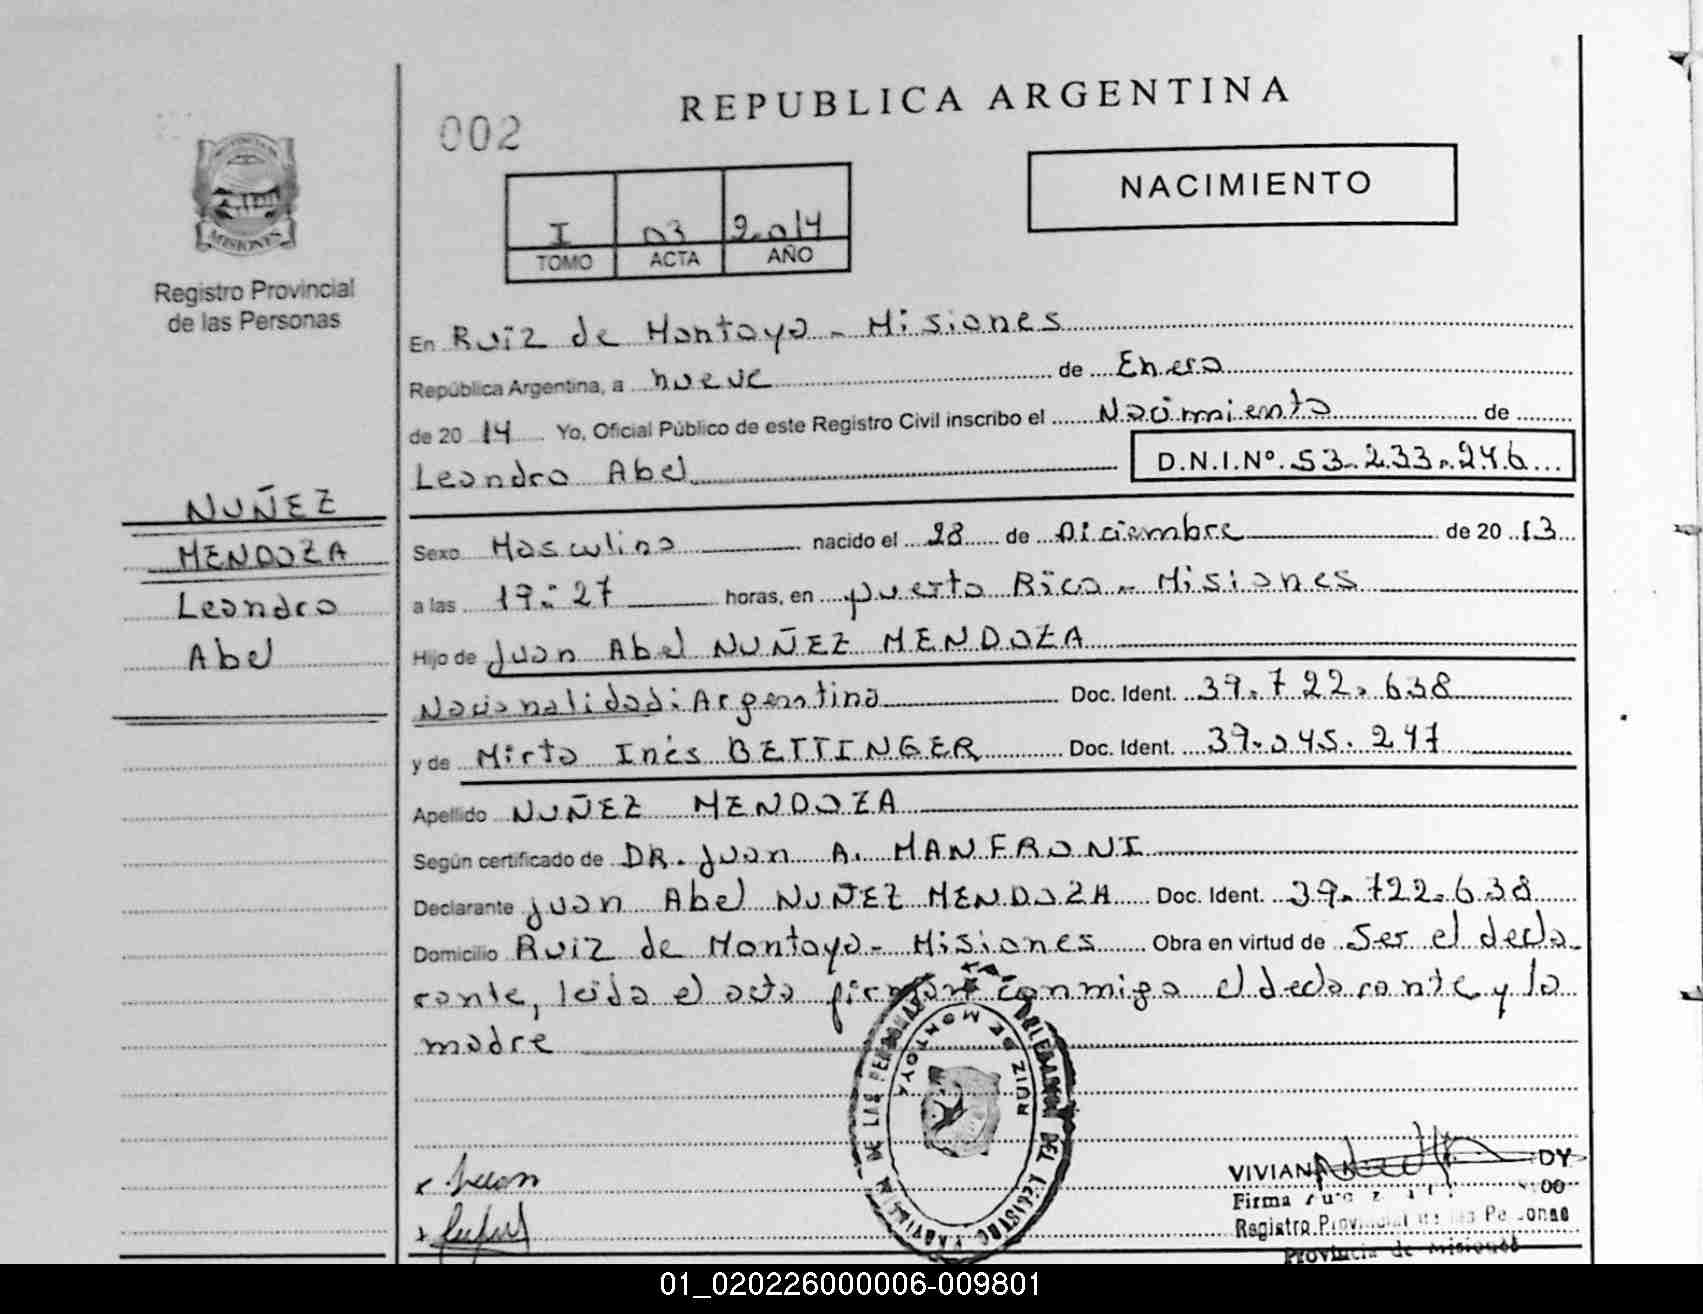 REPUBLICA ARGENTINA
002
NACIMIENTO
I 03 2014
TOMO ACTA AÑO
MISIONES
Registro Provincial
de las Personas
En Ruiz de Montoya - Misiones
República Argentina, a nueve de Enero
de 20 14 Yo, Oficial Público de este Registro Civil inscribo el Nacimiento de
Leandro Abel D.N.I.Nº. 53.233.246
NUÑEZ
MENDOZA
Leandro
Abel
Sexo Masculino nacido el 28 de Diciembre de 20 13
a las 19:27 horas, en puerto Rico - Misiones
Hijo de Juan Abel NUÑEZ MENDOZA
Nacionalidad: Argentina Doc. Ident. 39.722.638
y de Mirta Inés BETTINGER Doc. Ident. 39.045.247
Apellido NUÑEZ MENDOZA
Según certificado de DR. Juan A. MANFRONI
Declarante Juan Abel NUÑEZ MENDOZA Doc. Ident. 39.722.638
Domicilio Ruiz de Montoya - Misiones Obra en virtud de Ser el decla
rante, leida el acta firman conmigo el declarante y la
madre
DELEGACION DEL REGISTRO PROVINCIAL DE LAS PERSONAS
RUIZ DE MONTOYA
Juan
VIVIANA DY
Firma
Registro Provincial de las Personas
Provincia de Misiones
01_020226000006-009801